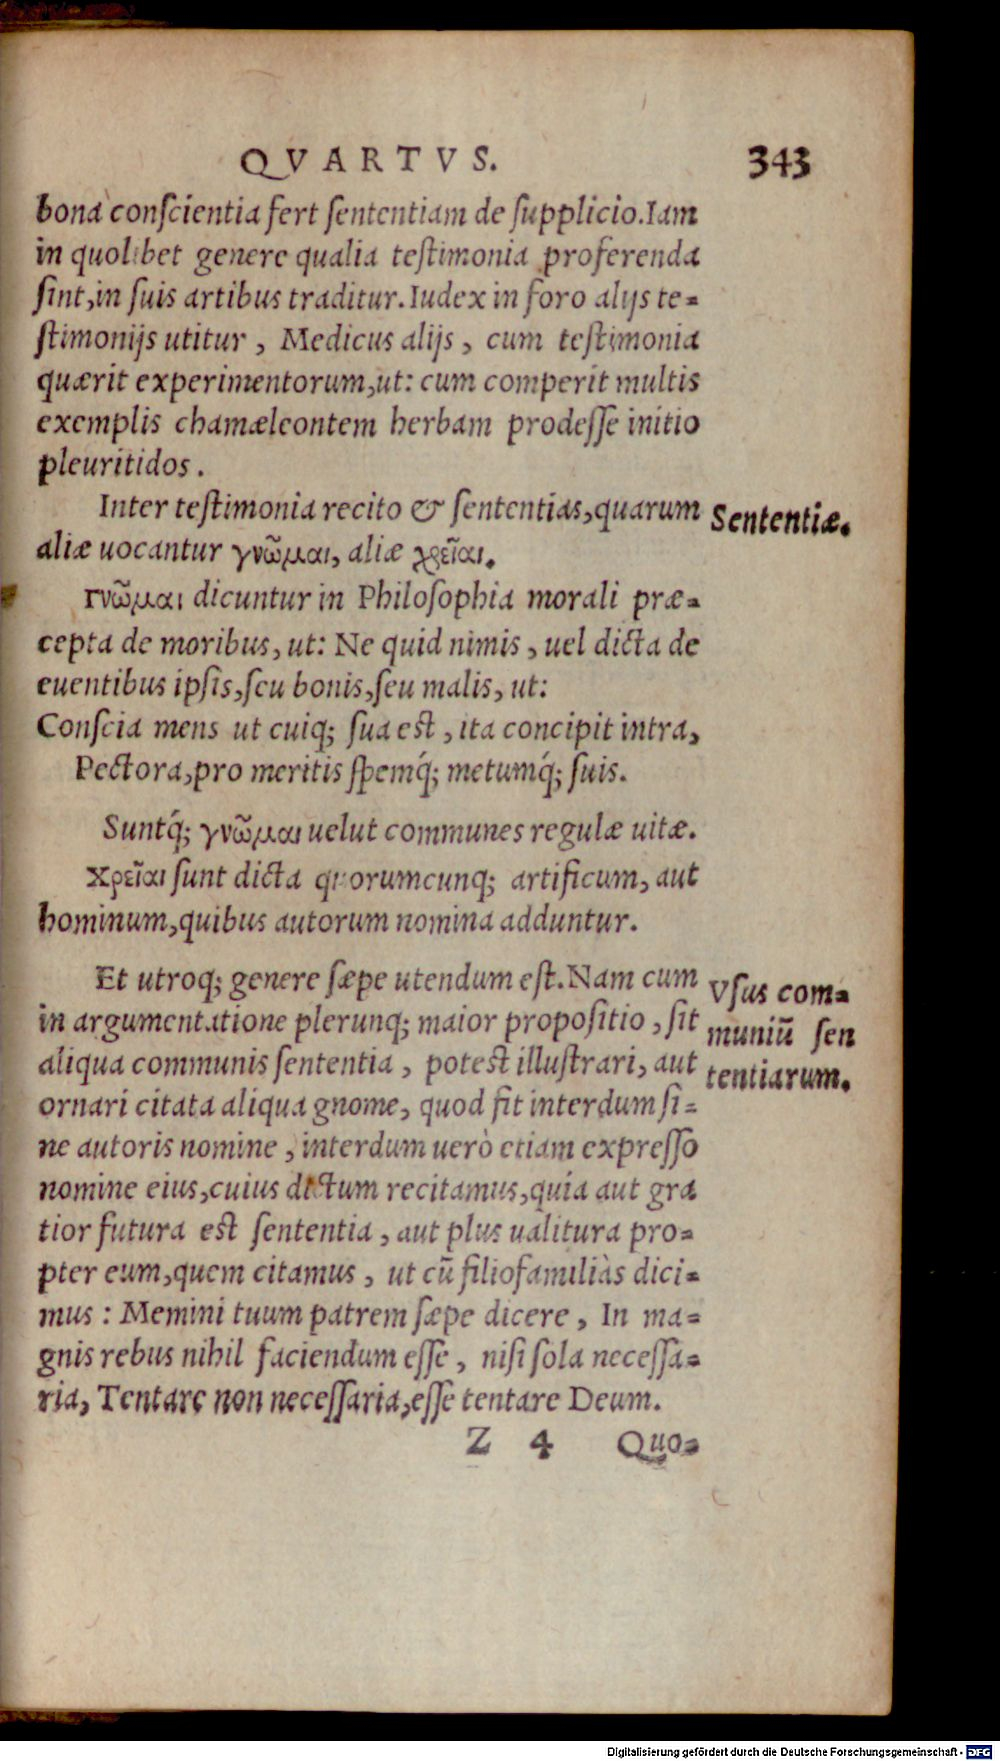 QVARTVS. 343
bona conſcientia fert ſententiam de ſupplicio. Iam
in quolibet genere qualia teſtimonia proferenda
ſint, in ſuis artibus traditur. Iudex in foro alijs te-
ſtimonijs utitur, Medicus alijs, cum teſtimonia
quærit experimentorum, ut: cum comperit multis
exemplis chamæleontem herbam prodeſſe initio
pleuritidos.
Inter teſtimonia recito & ſententias, quarum
Sententiæ.
aliæ uocantur γνῶμαι, aliæ χρεῖαι.
Γνῶμαι dicuntur in Philoſophia morali præ-
cepta de moribus, ut: Ne quid nimis, uel dicta de
euentibus ipſis, ſeu bonis, ſeu malis, ut:
Conſcia mens ut cuiq; ſua est, ita concipit intra,
Pectora, pro meritis ſpemq́; metumq́; ſuis.
Suntq́; γνῶμαι uelut communes regulæ uitæ.
Χρεῖαι ſunt dicta quorumcunq; artificum, aut
hominum, quibus autorum nomina adduntur.
Et utroq; genere ſæpe utendum eſt. Nam cum
in argumentatione plerunq; maior propoſitio, ſit
aliqua communis ſententia, potest illuſtrari, aut
Vſus com-
muniũ ſen
tentiarum.
ornari citata aliqua gnome, quod fit interdum ſi-
ne autoris nomine, interdum uerò etiam expreſſo
nomine eius, cuius dictum recitamus, quia aut gra
tior futura est ſententia, aut plus ualitura pro-
pter eum, quem citamus, ut cũ filiofamiliàs dici-
mus: Memini tuum patrem ſæpe dicere, In ma-
gnis rebus nihil faciendum eſſe, niſi ſola neceſſa-
ria, Tentare non neceſſaria, eſſe tentare Deum.
Z 4 Quo-
Digitalisierung gefördert durch die Deutsche Forschungsgemeinschaft - DFG